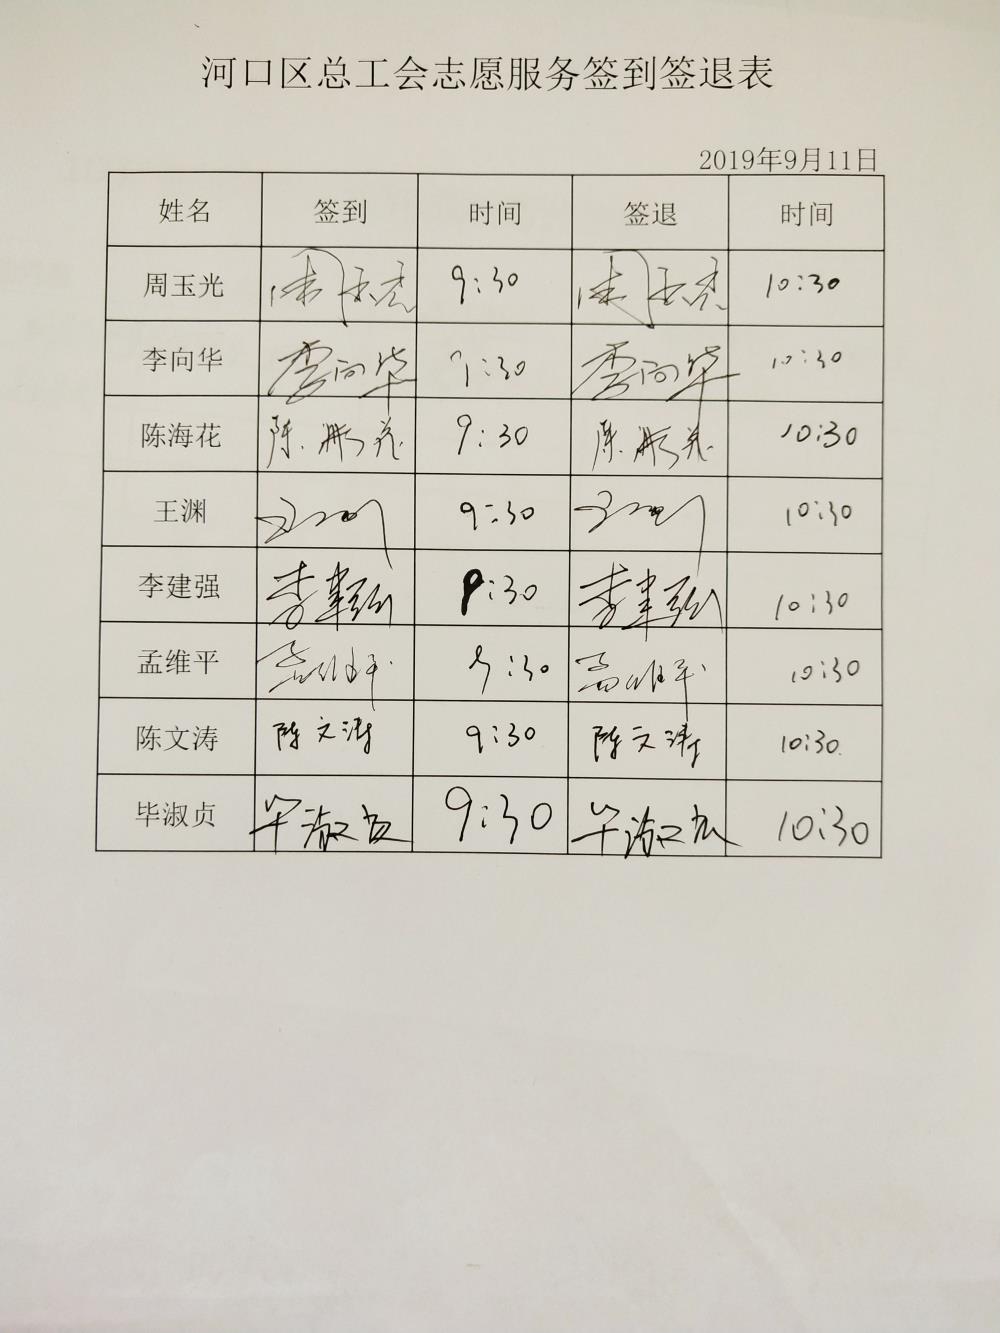 河口区总工会志愿服务签到签退表
2019年9月11日
姓名 签到 时间 签退 时间
周玉光 周玉光 9:30 周玉光 10:30
李向华 李向华 9:30 李向华 10:30
陈海花 陈海花 9:30 陈海花 10:30
王渊 王渊 9:30 王渊 10:30
李建强 李建强 9:30 李建强 10:30
孟维平 孟维平 9:30 孟维平 10:30
陈文涛 陈文涛 9:30 陈文涛 10:30
毕淑贞 毕淑贞 9:30 毕淑贞 10:30